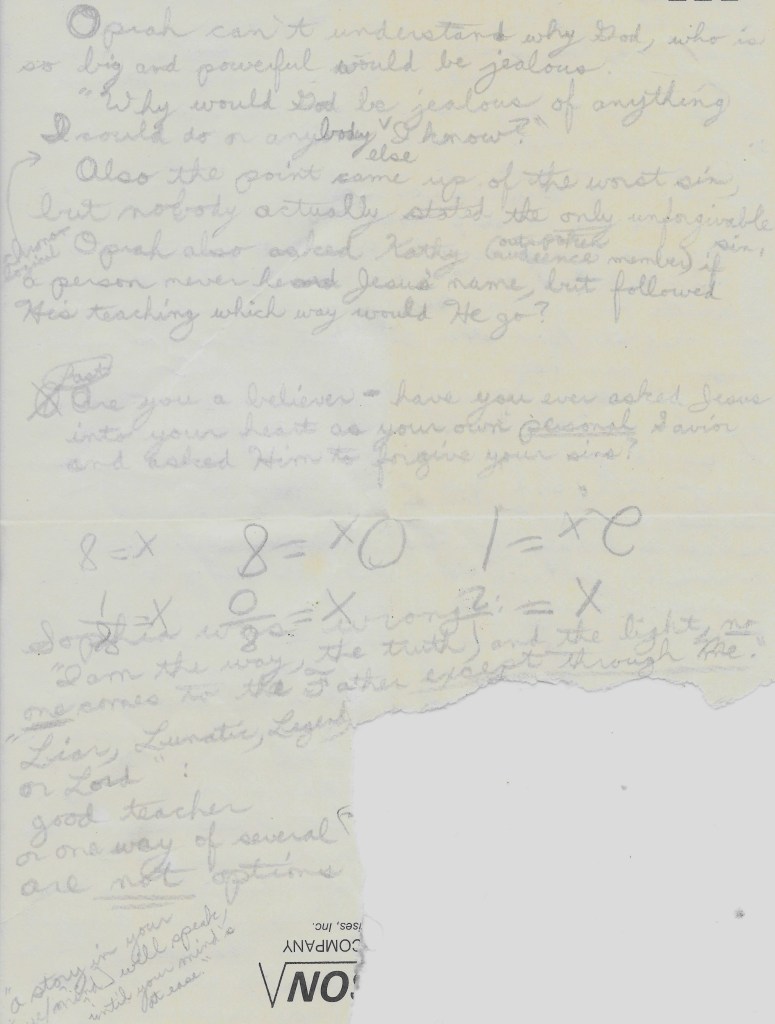 Oprah can't understand why God, who is
so big and powerful would be jealous.
"Why would God be jealous of anything
I could do or anybody else I know?"
Also the point came up of the worst sin,
but nobody actually stated the only unforgivable
sin,
chronological
Oprah also asked Kathy (outspoken audeence member) if
a person never heard Jesus' name, but followed
His teaching which way would He go?
Are you a believer - have you ever asked Jesus
into your heart as your own personal Savior
and asked Him to forgive your sins?
8 = x 0x = 8 2x = 1
1/8 = x 0/8 = x 2 = x
Sophia was wrong:
"I am the way, the truth, and the light, no
one comes to the Father except through Me."
"Liar, Lunatic, Legend,
or Lord":
good teacher
or one way of several
are not options
"a story in your
mind will speak,
until your mind's
at ease."
ises, Inc.
COMPANY
SON